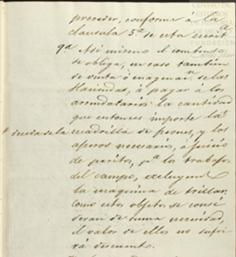 proceder, conforme a la
clausula 5ª de esta escritª
9ª Asi mismo el comprador
se obliga, en caso tambien
de venta ó enagenaⁿ de las
Haciendas, á pagar á los
arrendatarios la cantidad
que entonces importe la
cuadrilla de peones, y los
aperos necesarios, á juicio
de peritos, pª los trabajos
del campo, excluyendo
la maquina de trillar,
como estos objetos se consi
deran de suma necesidad,
el valor de ellos no sufri
rá descuento.